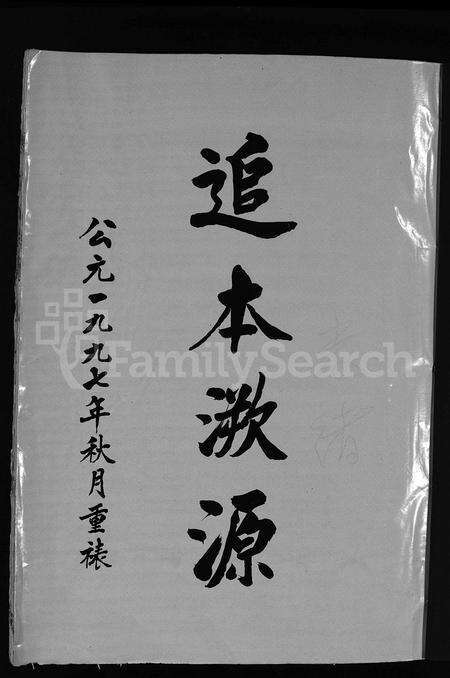 追本溯源
公元一九九七年秋月重裱
FamilySearch